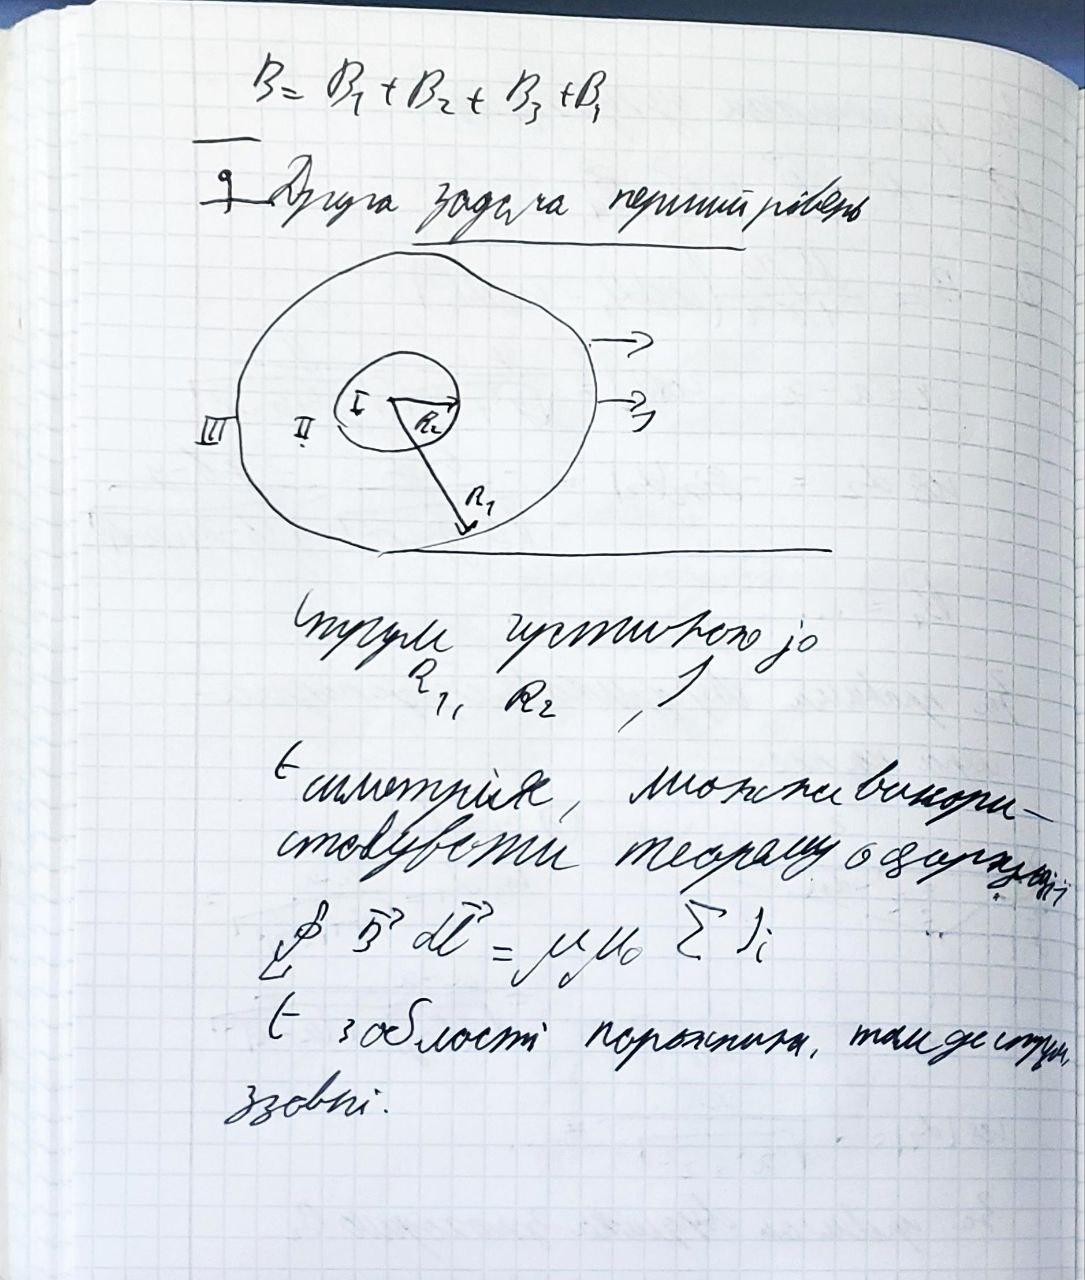 B = B₁ + B₂ + B₃ + B₁
9 Друга задача перший рівень
III II I R₂
R₁
Струм густиною j₀
R₁, R₂, J
Є симетрія, можна викори-
стовувати теорему о циркуляції
∮ B⃗ dl⃗ = μμ₀ Σ Ji
L
Є 3 області порожнина, там де струм,
ззовні.